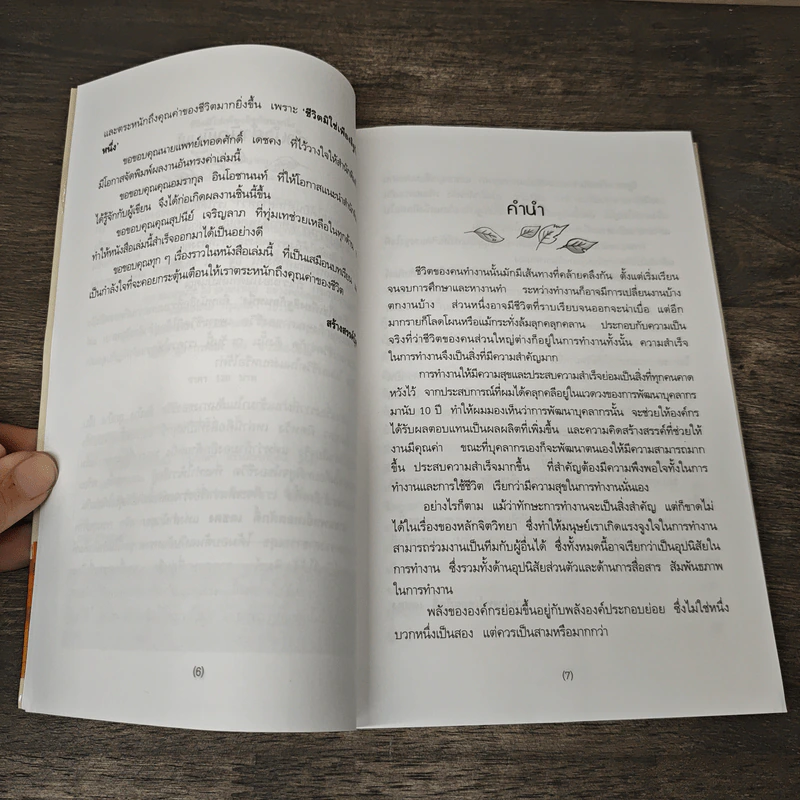 และตระหนักถึงคุณค่าของชีวิตมากยิ่งขึ้น เพราะ 'ชีวิตมิใช่เพียง
หนึ่ง'
ขอขอบคุณนายแพทย์เทอดศักดิ์ เดชคง ที่ไว้วางใจให้
มีโอกาสจัดพิมพ์ผลงานอันทรงค่าเล่มนี้
ขอขอบคุณคุณอมรากุล อินโอชานนท์ ที่ให้โอกาสแนะนำ
ได้รู้จักกับผู้เขียน จึงได้ก่อเกิดผลงานชิ้นนี้ขึ้น
ขอขอบคุณคุณสุปนีย์ เจริญลาภ ที่ทุ่มเทช่วยเหลือในทุกด้าน
ทำให้หนังสือเล่มนี้สำเร็จออกมาได้เป็นอย่างดี
ขอขอบคุณทุก ๆ เรื่องราวในหนังสือเล่มนี้ ที่เป็นเสมือน
เป็นกำลังใจที่จะคอยกระตุ้นเตือนให้เราตระหนักถึงคุณค่าของชีวิต
(6)
คำนำ
ชีวิตของคนทำงานนั้นมักมีเส้นทางที่คล้ายคลึงกัน ตั้งแต่เริ่มเรียน
จนจบการศึกษาและหางานทำ ระหว่างทำงานก็อาจมีการเปลี่ยนงานบ้าง
ตกงานบ้าง ส่วนหนึ่งอาจมีชีวิตที่ราบเรียบจนออกจะน่าเบื่อ แต่อีก
มากรายก็โลดโผนหรือแม้กระทั่งล้มลุกคลุกคลาน ประกอบกับความเป็น
จริงที่ว่าชีวิตของคนส่วนใหญ่ต่างก็อยู่ในการทำงานทั้งนั้น ความสำเร็จ
ในการทำงานจึงเป็นสิ่งที่มีความสำคัญมาก
การทำงานให้มีความสุขและประสบความสำเร็จย่อมเป็นสิ่งที่ทุกคนคาด
หวังไว้ จากประสบการณ์ที่ผมได้คลุกคลีอยู่ในแวดวงของการพัฒนาบุคลากร
มานับ 10 ปี ทำให้ผมมองเห็นว่าการพัฒนาบุคลากรนั้น จะช่วยให้องค์กร
ได้รับผลตอบแทนเป็นผลผลิตที่เพิ่มขึ้น และความคิดสร้างสรรค์ที่ช่วยให้
งานมีคุณค่า ขณะที่บุคลากรเองก็จะพัฒนาตนเองให้มีความสามารถมาก
ขึ้น ประสบความสำเร็จมากขึ้น ที่สำคัญต้องมีความพึงพอใจทั้งในการ
ทำงานและการใช้ชีวิต เรียกว่ามีความสุขในการทำงานนั่นเอง
อย่างไรก็ตาม แม้ว่าทักษะการทำงานจะเป็นสิ่งสำคัญ แต่ก็ขาดไม่
ได้ในเรื่องของหลักจิตวิทยา ซึ่งทำให้มนุษย์เราเกิดแรงจูงใจในการทำงาน
สามารถร่วมงานเป็นทีมกับผู้อื่นได้ ซึ่งทั้งหมดนี้อาจเรียกว่าเป็นอุปนิสัยใน
การทำงาน ซึ่งรวมทั้งด้านอุปนิสัยส่วนตัวและด้านการสื่อสาร สัมพันธภาพ
ในการทำงาน
พลังขององค์กรย่อมขึ้นอยู่กับพลังองค์ประกอบย่อย ซึ่งไม่ใช่หนึ่ง
บวกหนึ่งเป็นสอง แต่ควรเป็นสามหรือมากกว่า
(7)